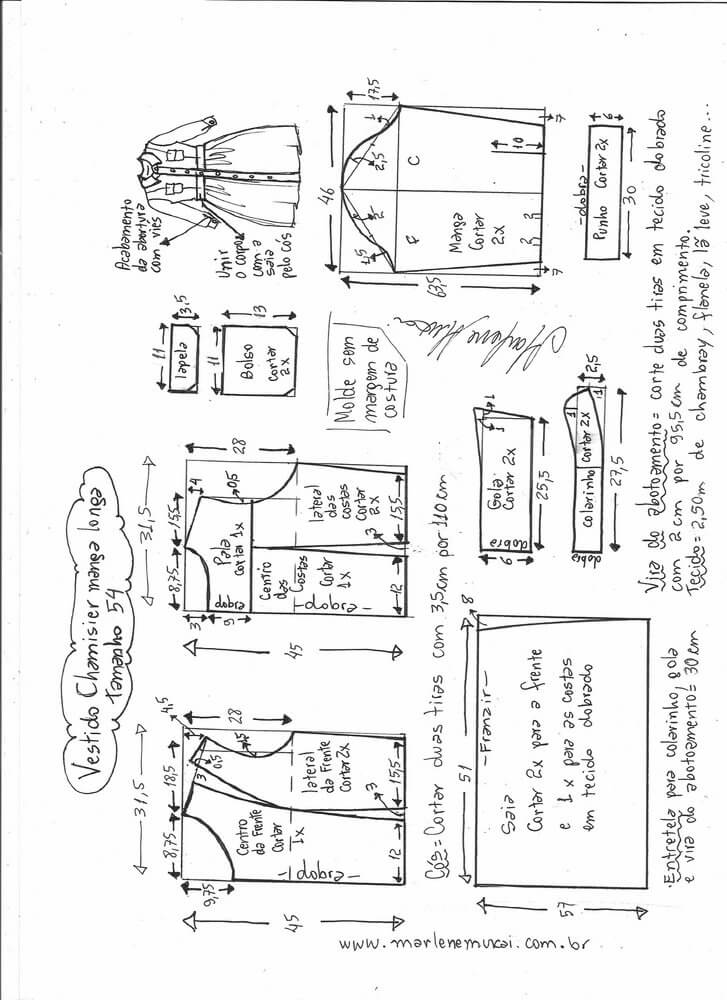 Vestido Chamisier manga longa
Tamanho 54
31,5
8,75
18,5
4,5
3
0,5
1,5
28
9,75
45
Centro
da Frente
Cortar
1x
-dobra-
lateral
da Frente
Cortar 2x
12
3
15,5
31,5
8,75
15,5
4
0,5
28
3
9
45
Pala
Cortar 1x
dobra
Centro
das
Costas
Cortar
1x
-dobra-
lateral
das
costas
Cortar
2x
12
3
15,5
11
lapela
3,5
11
Bolso
Cortar
2x
13
Acabamento
da abertura
com viés
Unir
o corpo
com a
saia
pelo cós
Molde sem
margem de
costura
46
17,5
1
2,5
2
1,5
63,5
C
F
Manga
Cortar
2x
10
2
2
7
7
Marlene Mukai
Cós = Cortar duas tiras com 3,5cm por 110cm
51
8
-Franzir-
Saia
Cortar 2x para a frente
e 1x para as costas
em tecido dobrado
57
9
dobra
Gola
Cortar 2x
1
1
25,5
dobra
colarinho
cortar 2x
1
1
2,5
27,5
-dobra-
Punho Cortar 2x
6
30
Vira do abotoamento = corte duas tiras em tecido dobrado
com 2cm por 95,5cm de comprimento.
Tecido = 2,50m de chambray, flanela, lã leve, tricoline...
.Entretela para colarinho, gola
e vira do abotoamento = 30cm
www.marlenemukai.com.br